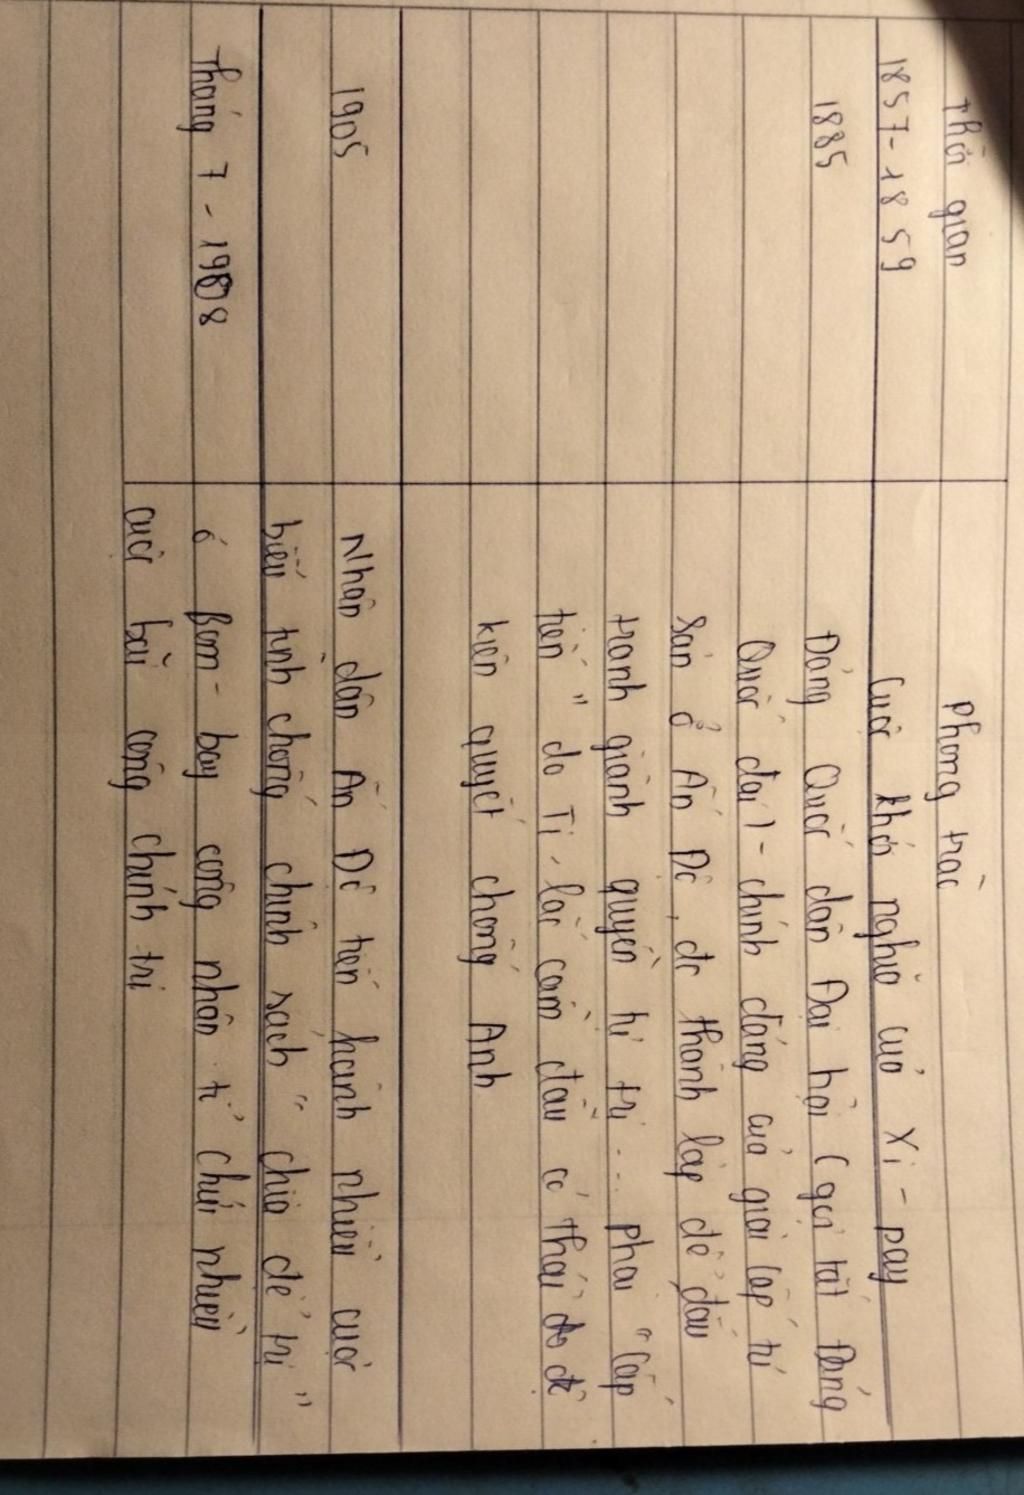 Thời gian
Phong trào
1857-1859
Cuộc khởi nghĩa của Xi-pay
1885
Đảng Quốc dân Đại hội (gọi tắt Đảng
Quốc đại) - chính đảng của giai cấp tư
sản ở Ấn Độ, đc thành lập để đấu
tranh giành quyền tự trị ... phái "Cấp
tiến" do Ti-lắc cầm đầu có thái độ
kiên quyết chống Anh
1905
Nhân dân Ấn Độ tiến hành nhiều cuộc
biểu tình chống chính sách "chia để trị"
Tháng 7-1908
ở Bom-bay công nhân tổ chức nhiều
cuộc bãi công chính trị